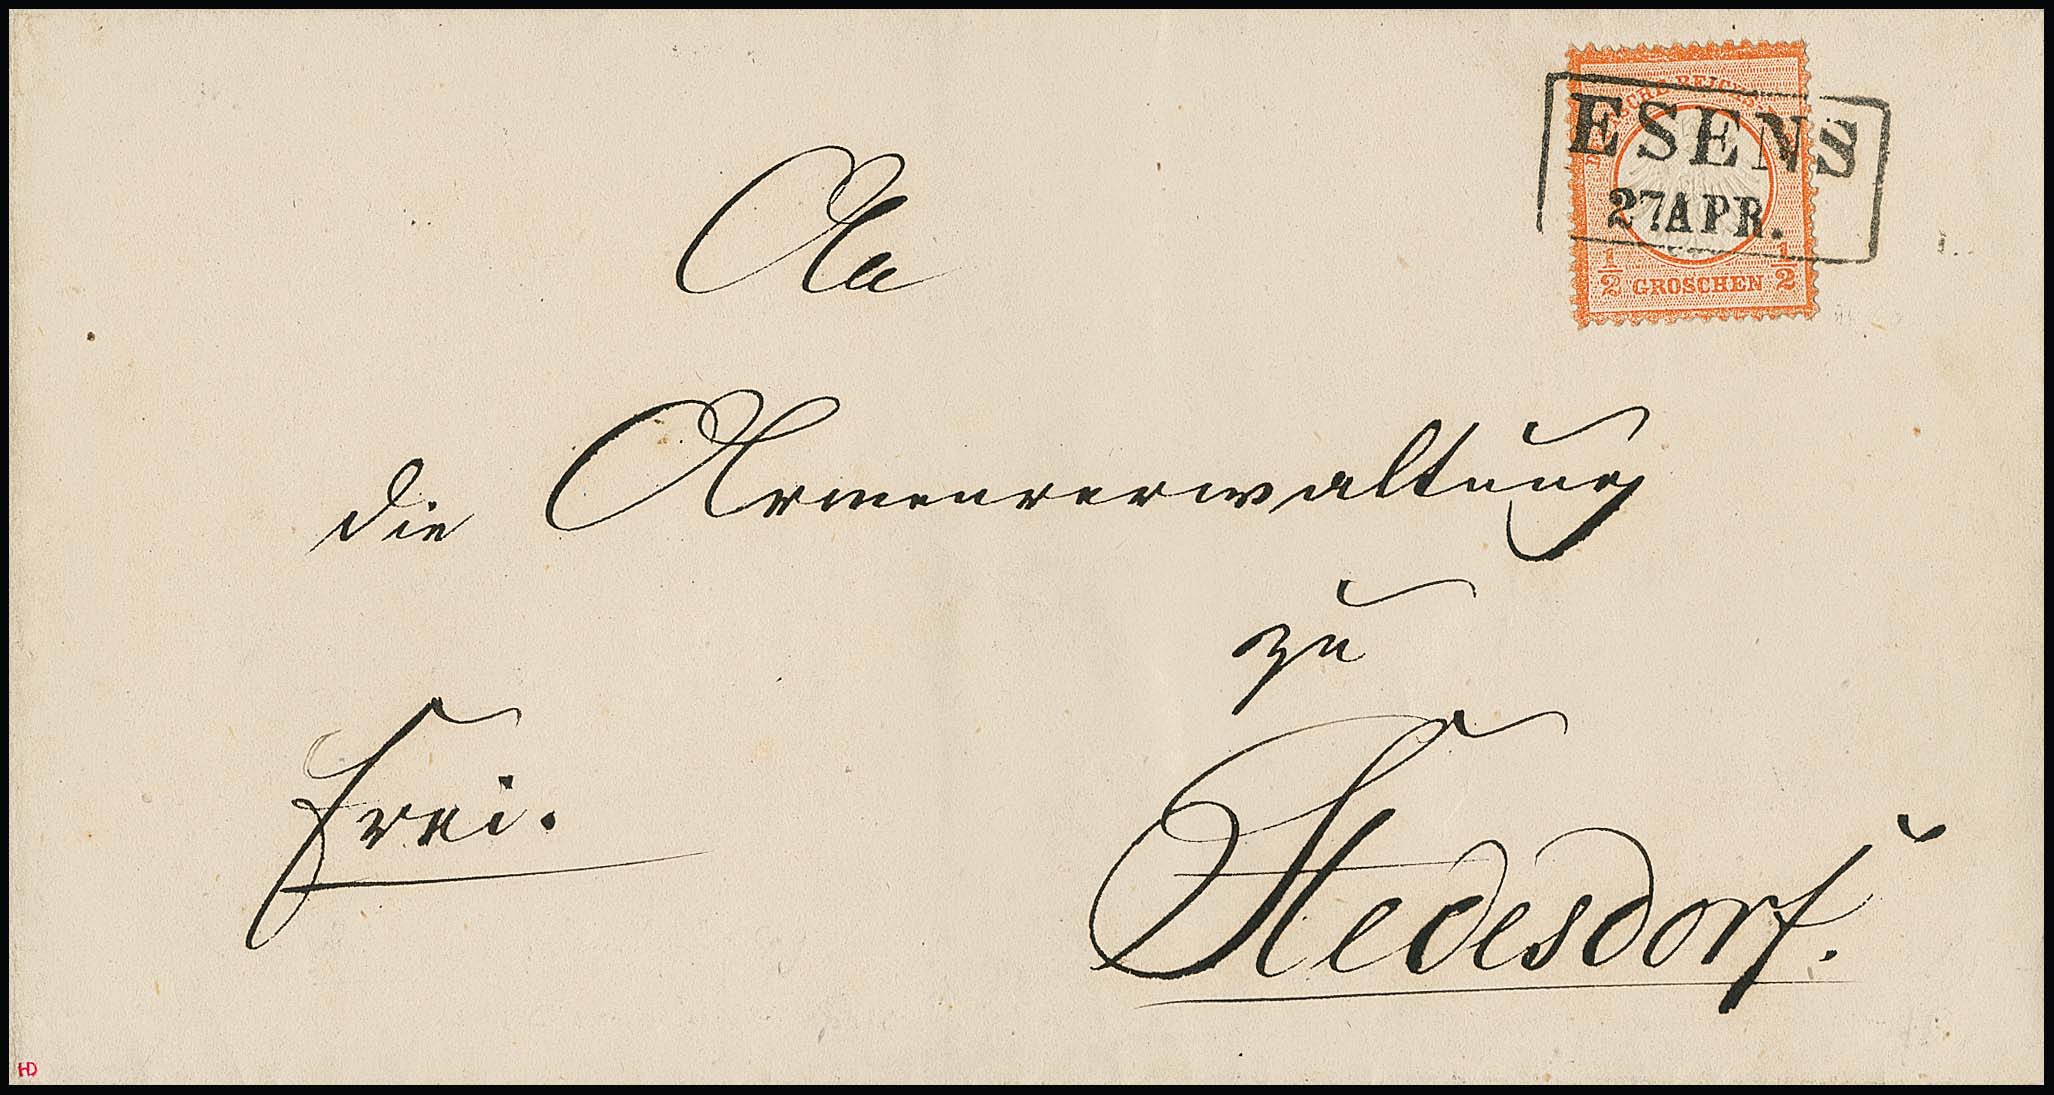 DEUTSCHE REICHS-POST
ESENS
27 APR.
½ GROSCHEN ½
An
die Armenverwaltung
zu
Frei.
Stedesdorf.
HD